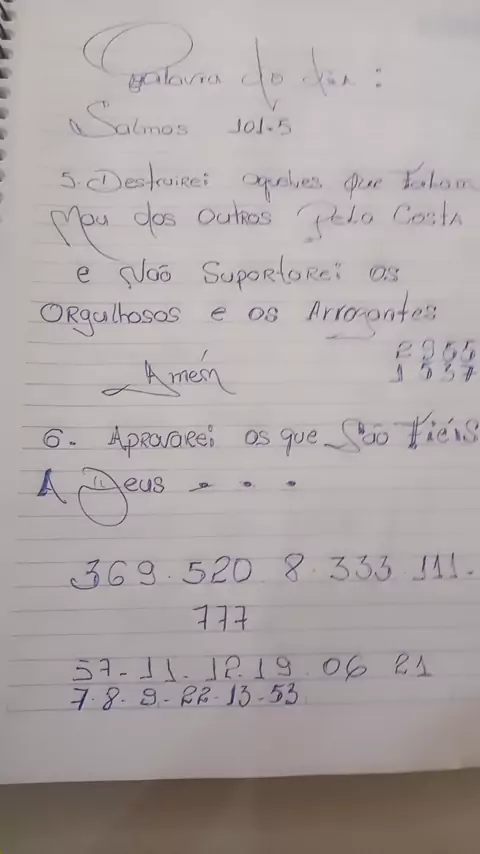 Palavra do dia:
Salmos 101.5
5. Destruirei aqueles que falam
Mau dos outros Pela Costa
e Não Suportarei os
ORgulhosos e os Arrogantes
2955
1537
Amém
6. APROVAREi os que São Fiéis
A Deus . . .
369.520 8.333.111.
777
57-11.12.19.06 21
7.8.9-22-13-53